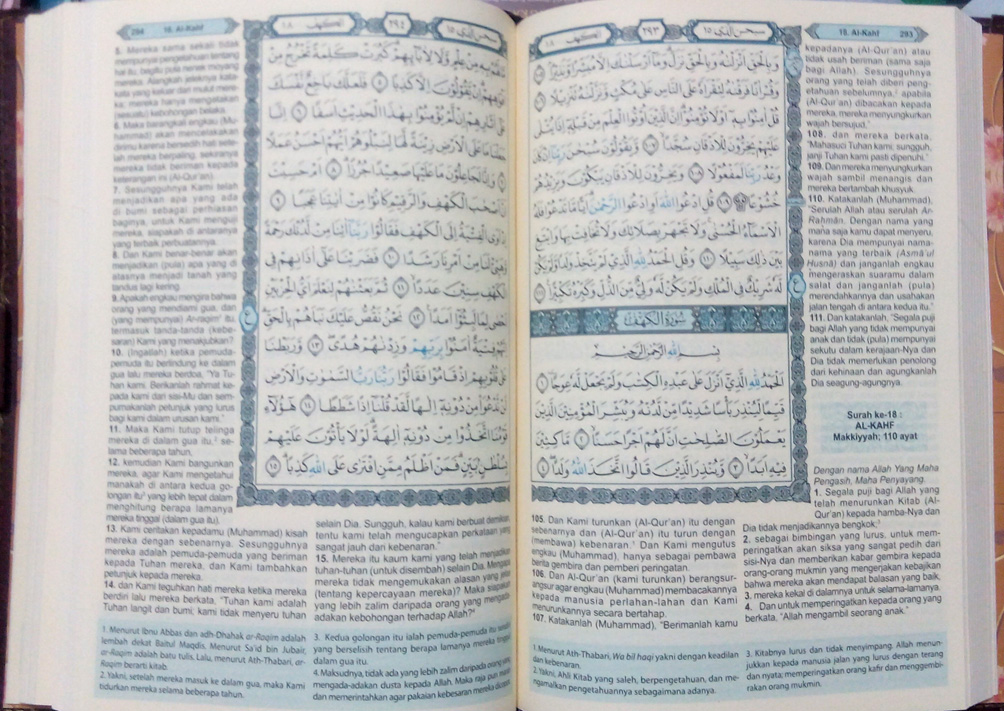 سبحن الذى ١٥
٢٩٣
الكهف ١٨
18. Al-Kahf 293
وَبِالْحَقِّ اَنْزَلْنٰهُ وَبِالْحَقِّ نَزَلَۗ وَمَآ اَرْسَلْنٰكَ اِلَّا مُبَشِّرًا وَّنَذِيْرًاۘ ۝١٠٥
وَقُرْاٰنًا فَرَقْنٰهُ لِتَقْرَاَهٗ عَلَى النَّاسِ عَلٰى مُكْثٍ وَّنَزَّلْنٰهُ تَنْزِيْلًا ۝١٠٦
قُلْ اٰمِنُوْا بِهٖٓ اَوْ لَا تُؤْمِنُوْاۗ اِنَّ الَّذِيْنَ اُوْتُوا الْعِلْمَ مِنْ قَبْلِهٖٓ اِذَا يُتْلٰى
عَلَيْهِمْ يَخِرُّوْنَ لِلْاَذْقَانِ سُجَّدًا ۝١٠٧ وَيَقُوْلُوْنَ سُبْحٰنَ رَبِّنَآ اِنْ كَانَ
وَعْدُ رَبِّنَا لَمَفْعُوْلًا ۝١٠٨ وَيَخِرُّوْنَ لِلْاَذْقَانِ يَبْكُوْنَ وَيَزِيْدُهُمْ
خُشُوْعًا ۩ ۝١٠٩ قُلِ ادْعُوا اللّٰهَ اَوِ ادْعُوا الرَّحْمٰنَۗ اَيًّا مَّا تَدْعُوْا فَلَهُ
الْاَسْمَاۤءُ الْحُسْنٰىۚ وَلَا تَجْهَرْ بِصَلَاتِكَ وَلَا تُخَافِتْ بِهَا وَابْتَغِ
بَيْنَ ذٰلِكَ سَبِيْلًا ۝١١٠ وَقُلِ الْحَمْدُ لِلّٰهِ الَّذِيْ لَمْ يَتَّخِذْ وَلَدًا وَّلَمْ يَكُنْ
لَّهٗ شَرِيْكٌ فِى الْمُلْكِ وَلَمْ يَكُنْ لَّهٗ وَلِيٌّ مِّنَ الذُّلِّ وَكَبِّرْهُ تَكْبِيْرًا ۝١١١
سُوْرَةُ الْكَهْفِ
بِسْمِ اللّٰهِ الرَّحْمٰنِ الرَّحِيْمِ
اَلْحَمْدُ لِلّٰهِ الَّذِيْٓ اَنْزَلَ عَلٰى عَبْدِهِ الْكِتٰبَ وَلَمْ يَجْعَلْ لَّهٗ عِوَجًا ۝١
قَيِّمًا لِّيُنْذِرَ بَأْسًا شَدِيْدًا مِّنْ لَّدُنْهُ وَيُبَشِّرَ الْمُؤْمِنِيْنَ الَّذِيْنَ
يَعْمَلُوْنَ الصّٰلِحٰتِ اَنَّ لَهُمْ اَجْرًا حَسَنًا ۝٢ مَّاكِثِيْنَ
فِيْهِ اَبَدًا ۝٣ وَّيُنْذِرَ الَّذِيْنَ قَالُوا اتَّخَذَ اللّٰهُ وَلَدًا ۝٤
105. Dan Kami turunkan (Al-Qur'an) itu dengan
sebenarnya dan (Al-Qur'an) itu turun dengan
(membawa) kebenaran.¹ Dan Kami mengutus
engkau (Muhammad), hanya sebagai pembawa
berita gembira dan pemberi peringatan.
106. Dan Al-Qur'an (kami turunkan) berangsur-
angsur agar engkau (Muhammad) membacakannya
kepada manusia perlahan-lahan dan Kami
menurunkannya secara bertahap.
107. Katakanlah (Muhammad), "Berimanlah kamu
kepadanya (Al-Qur'an) atau
tidak usah beriman (sama saja
bagi Allah). Sesungguhnya
orang yang telah diberi peng-
etahuan sebelumnya,² apabila
(Al-Qur'an) dibacakan kepada
mereka, mereka menyungkurkan
wajah bersujud,"
108. dan mereka berkata,
"Mahasuci Tuhan kami; sungguh,
janji Tuhan kami pasti dipenuhi."
109. Dan mereka menyungkurkan
wajah sambil menangis dan
mereka bertambah khusyuk.
110. Katakanlah (Muhammad),
"Serulah Allah atau serulah Ar-
Rahmān. Dengan nama yang
mana saja kamu dapat menyeru,
karena Dia mempunyai nama-
nama yang terbaik (Asmā'ul
Husnā) dan janganlah engkau
mengeraskan suaramu dalam
salat dan janganlah (pula)
merendahkannya dan usahakan
jalan tengah di antara kedua itu."
111. Dan katakanlah, "Segala puji
bagi Allah yang tidak mempunyai
anak dan tidak (pula) mempunyai
sekutu dalam kerajaan-Nya dan
Dia tidak memerlukan penolong
dari kehinaan dan agungkanlah
Dia seagung-agungnya.
Surah ke-18 :
AL-KAHF
Makkiyyah; 110 ayat
Dengan nama Allah Yang Maha
Pengasih, Maha Penyayang.
1. Segala puji bagi Allah yang
telah menurunkan Kitab (Al-
Qur'an) kepada hamba-Nya dan
Dia tidak menjadikannya bengkok;³
2. sebagai bimbingan yang lurus, untuk mem-
peringatkan akan siksa yang sangat pedih dari
sisi-Nya dan memberikan kabar gembira kepada
orang-orang mukmin yang mengerjakan kebajikan
bahwa mereka akan mendapat balasan yang baik,
3. mereka kekal di dalamnya untuk selama-lamanya.
4. Dan untuk memperingatkan kepada orang yang
berkata, "Allah mengambil seorang anak."
1. Menurut Ath-Thabari, Wa bil haqi yakni dengan keadilan
dan kebenaran.
2. Yakni, Ahli Kitab yang saleh, berpengetahuan, dan me-
ngamalkan pengetahuannya sebagaimana adanya.
3. Kitabnya lurus dan tidak menyimpang. Allah menun-
jukkan kepada manusia jalan yang lurus dengan terang
dan nyata; memperingatkan orang kafir dan menggembi-
rakan orang mukmin.
سبحن الذى ١٥
٢٩٤
الكهف ١٨
294 18. Al-Kahf
مَا لَهُمْ بِهٖ مِنْ عِلْمٍ وَّلَا لِاٰبَاۤىِٕهِمْۗ كَبُرَتْ كَلِمَةً تَخْرُجُ مِنْ
اَفْوَاهِهِمْۗ اِنْ يَّقُوْلُوْنَ اِلَّا كَذِبًا ۝٥ فَلَعَلَّكَ بَاخِعٌ نَّفْسَكَ
عَلٰٓى اٰثَارِهِمْ اِنْ لَّمْ يُؤْمِنُوْا بِهٰذَا الْحَدِيْثِ اَسَفًا ۝٦ اِنَّا
جَعَلْنَا مَا عَلَى الْاَرْضِ زِيْنَةً لَّهَا لِنَبْلُوَهُمْ اَيُّهُمْ اَحْسَنُ عَمَلًا
۝٧ وَاِنَّا لَجٰعِلُوْنَ مَا عَلَيْهَا صَعِيْدًا جُرُزًاۗ ۝٨ اَمْ حَسِبْتَ
اَنَّ اَصْحٰبَ الْكَهْفِ وَالرَّقِيْمِ كَانُوْا مِنْ اٰيٰتِنَا عَجَبًا ۝٩
اِذْ اَوَى الْفِتْيَةُ اِلَى الْكَهْفِ فَقَالُوْا رَبَّنَآ اٰتِنَا مِنْ لَّدُنْكَ رَحْمَةً
وَّهَيِّئْ لَنَا مِنْ اَمْرِنَا رَشَدًا ۝١٠ فَضَرَبْنَا عَلٰٓى اٰذَانِهِمْ فِى
الْكَهْفِ سِنِيْنَ عَدَدًاۙ ۝١١ ثُمَّ بَعَثْنٰهُمْ لِنَعْلَمَ اَيُّ الْحِزْبَيْنِ
اَحْصٰى لِمَا لَبِثُوْٓا اَمَدًا ۝١٢ نَحْنُ نَقُصُّ عَلَيْكَ نَبَاَهُمْ بِالْحَقِّۗ
اِنَّهُمْ فِتْيَةٌ اٰمَنُوْا بِرَبِّهِمْ وَزِدْنٰهُمْ هُدًىۖ ۝١٣ وَّرَبَطْنَا
عَلٰى قُلُوْبِهِمْ اِذْ قَامُوْا فَقَالُوْا رَبُّنَا رَبُّ السَّمٰوٰتِ وَالْاَرْضِ
لَنْ نَّدْعُوَا۟ مِنْ دُوْنِهٖٓ اِلٰهًا لَّقَدْ قُلْنَآ اِذًا شَطَطًا ۝١٤ هٰٓؤُلَاۤءِ
قَوْمُنَا اتَّخَذُوْا مِنْ دُوْنِهٖٓ اٰلِهَةًۗ لَوْلَا يَأْتُوْنَ عَلَيْهِمْ
بِسُلْطٰنٍۢ بَيِّنٍۗ فَمَنْ اَظْلَمُ مِمَّنِ افْتَرٰى عَلَى اللّٰهِ كَذِبًاۗ ۝١٥
5. Mereka sama sekali tidak
mempunyai pengetahuan tentang
hal itu, begitu pula nenek moyang
mereka. Alangkah jeleknya kata-
kata yang keluar dari mulut mere-
ka; mereka hanya mengatakan
(sesuatu) kebohongan belaka.
6. Maka barangkali engkau (Mu-
hammad) akan mencelakakan
dirimu karena bersedih hati sete-
lah mereka berpaling, sekiranya
mereka tidak beriman kepada
keterangan ini (Al-Qur'an).
7. Sesungguhnya Kami telah
menjadikan apa yang ada
di bumi sebagai perhiasan
baginya, untuk Kami menguji
mereka, siapakah di antaranya
yang terbaik perbuatannya.
8. Dan Kami benar-benar akan
menjadikan (pula) apa yang di
atasnya menjadi tanah yang
tandus lagi kering.
9. Apakah engkau mengira bahwa
orang yang mendiami gua, dan
(yang mempunyai) Ar-raqim¹ itu,
termasuk tanda-tanda (kebe-
saran) Kami yang menakjubkan?
10. (Ingatlah) ketika pemuda-
pemuda itu berlindung ke dalam
gua lalu mereka berdoa, "Ya Tu-
han kami. Berikanlah rahmat ke-
pada kami dari sisi-Mu dan sem-
purnakanlah petunjuk yang lurus
bagi kami dalam urusan kami."
11. Maka Kami tutup telinga
mereka di dalam gua itu,² se-
lama beberapa tahun,
12. kemudian Kami bangunkan
mereka, agar Kami mengetahui
manakah di antara kedua go-
longan itu³ yang lebih tepat dalam
menghitung berapa lamanya
mereka tinggal (dalam gua itu).
13. Kami ceritakan kepadamu (Muhammad) kisah
mereka dengan sebenarnya. Sesungguhnya
mereka adalah pemuda-pemuda yang beriman
kepada Tuhan mereka, dan Kami tambahkan
petunjuk kepada mereka.
14. dan Kami teguhkan hati mereka ketika mereka
berdiri lalu mereka berkata, "Tuhan kami adalah
Tuhan langit dan bumi; kami tidak menyeru tuhan
selain Dia. Sungguh, kalau kami berbuat demikian
tentu kami telah mengucapkan perkataan yang
sangat jauh dari kebenaran."
15. Mereka itu kaum kami yang telah menjadikan
tuhan-tuhan (untuk disembah) selain Dia. Mengapa
mereka tidak mengemukakan alasan yang jelas
(tentang kepercayaan mereka)? Maka siapakah
yang lebih zalim daripada orang yang mengada-
adakan kebohongan terhadap Allah?⁴
1. Menurut Ibnu Abbas dan adh-Dhahak ar-Raqim adalah
lembah dekat Baitul Maqdis. Menurut Sa'id bin Jubair,
ar-Raqim adalah batu tulis. Lalu, menurut Ath-Thabari, ar-
Raqim berarti kitab.
2. Yakni, setelah mereka masuk ke dalam gua, maka Kami
tidurkan mereka selama beberapa tahun.
3. Kedua golongan itu ialah pemuda-pemuda itu
yang berselisih tentang berapa lamanya mereka tinggal
dalam gua itu.
4. Maksudnya, tidak ada yang lebih zalim daripada orang yang
mengada-adakan dusta kepada Allah. Maka raja pun
dan memerintahkan agar pakaian kebesaran mereka